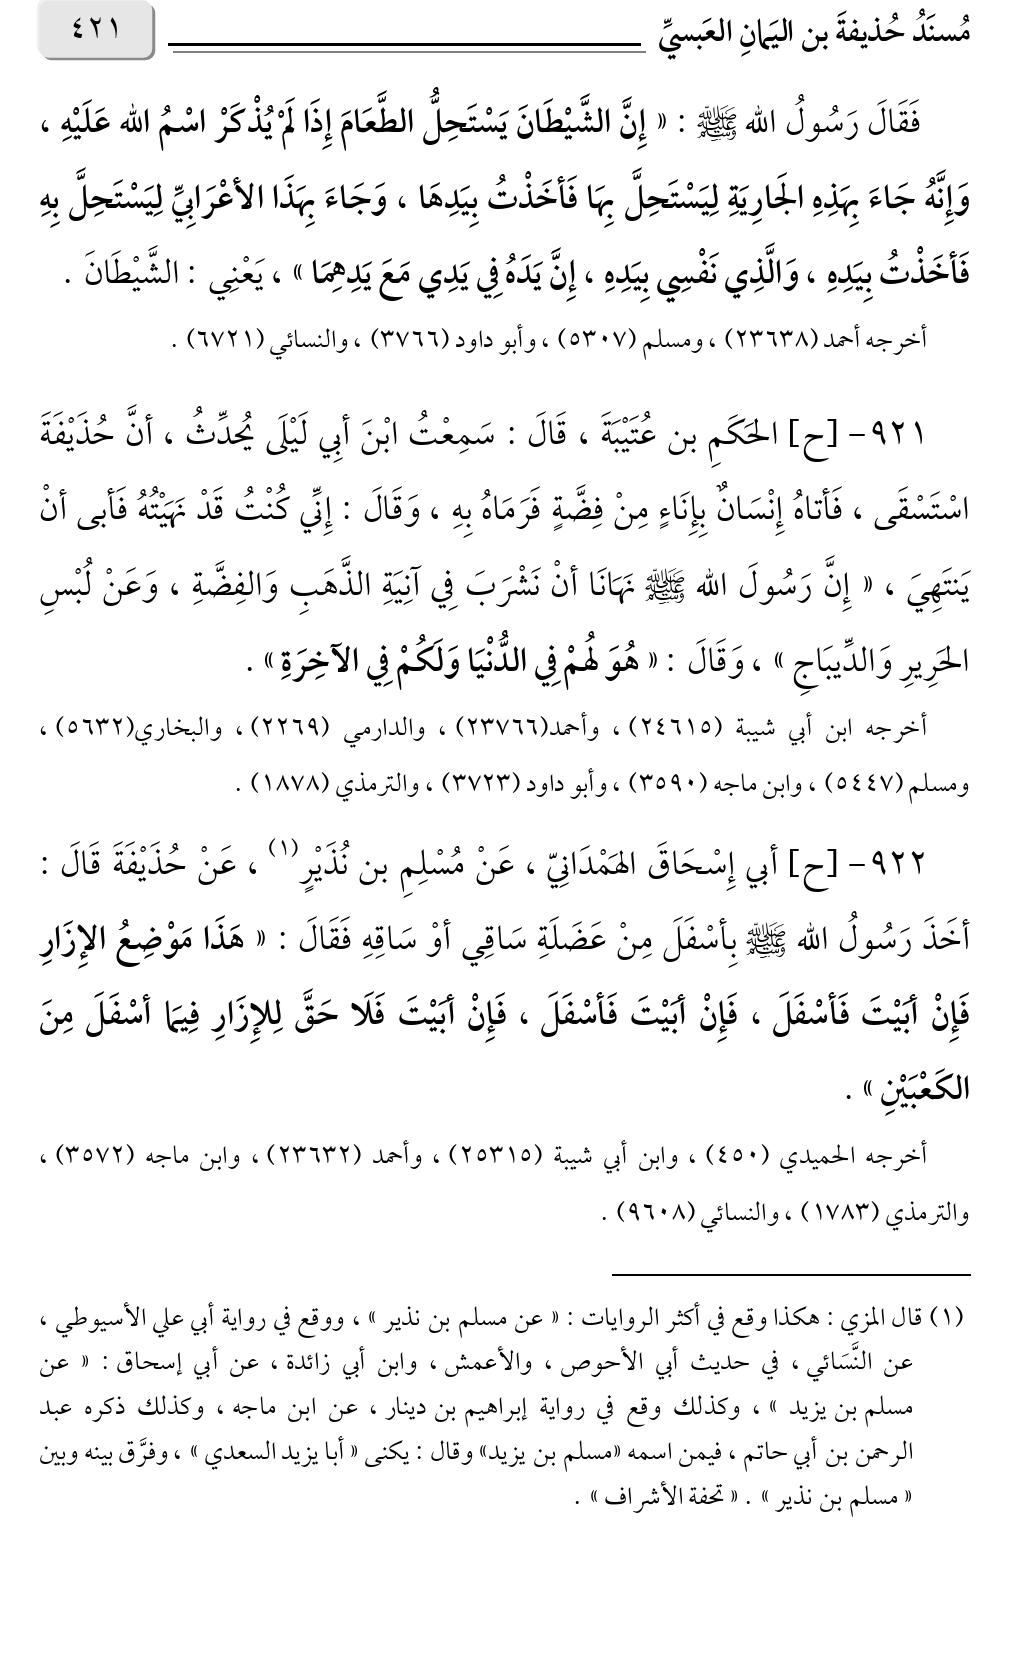 مُسنَدُ حُذيفةَ بن اليَمانِ العَبسيِّ
٤٢١
فَقَالَ رَسُولُ الله ﷺ : « إِنَّ الشَّيْطَانَ يَسْتَحِلُّ الطَّعَامَ إِذَا لَمْ يُذْكَرْ اسْمُ الله عَلَيْهِ ،
وَإِنَّهُ جَاءَ بِهَذِهِ الجَارِيَةِ لِيَسْتَحِلَّ بِهَا فَأخَذْتُ بِيَدِهَا ، وَجَاءَ بِهَذَا الأعْرَابِيِّ لِيَسْتَحِلَّ بِهِ
فَأخَذْتُ بِيَدِهِ ، وَالَّذِي نَفْسِي بِيَدِهِ ، إِنَّ يَدَهُ فِي يَدِي مَعَ يَدِهِمَا » ، يَعْنِي : الشَّيْطَانَ .
أخرجه أحمد (٢٣٦٣٨) ، ومسلم (٥٣٠٧) ، وأبو داود (٣٧٦٦) ، والنسائي (٦٧٢١) .
٩٢١- [ح] الحَكَمِ بن عُتَيْبَةَ ، قَالَ : سَمِعْتُ ابْنَ أبِي لَيْلَى يُحدِّثُ ، أنَّ حُذَيْفَةَ
اسْتَسْقَى ، فَأتاهُ إِنْسَانٌ بِإِنَاءٍ مِنْ فِضَّةٍ فَرَمَاهُ بِهِ ، وَقَالَ : إِنِّي كُنْتُ قَدْ نَهَيْتُهُ فَأبى أنْ
يَنتَهِيَ ، « إِنَّ رَسُولَ الله ﷺ نَهَانَا أنْ نَشْرَبَ فِي آنِيَةِ الذَّهَبِ وَالفِضَّةِ ، وَعَنْ لُبْسِ
الحَرِيرِ وَالدِّيبَاجِ » ، وَقَالَ : « هُوَ لَهُمْ فِي الدُّنْيَا وَلَكُمْ فِي الآخِرَةِ » .
أخرجه ابن أبي شيبة (٢٤٦١٥) ، وأحمد(٢٣٧٦٦) ، والدارمي (٢٢٦٩) ، والبخاري(٥٦٣٢) ،
ومسلم (٥٤٤٧) ، وابن ماجه (٣٥٩٠) ، وأبو داود (٣٧٢٣) ، والترمذي (١٨٧٨) .
٩٢٢- [ح] أبي إِسْحَاقَ الهَمْدَانِيّ ، عَنْ مُسْلِمِ بن نُذَيْرٍ(١) ، عَنْ حُذَيْفَةَ قَالَ :
أخَذَ رَسُولُ الله ﷺ بِأسْفَلَ مِنْ عَضَلَةِ سَاقِي أوْ سَاقِهِ فَقَالَ : « هَذَا مَوْضِعُ الإِزَارِ
فَإِنْ أبَيْتَ فَأسْفَلَ ، فَإِنْ أبَيْتَ فَأسْفَلَ ، فَإِنْ أبَيْتَ فَلَا حَقَّ لِلإِزَارِ فِيمَا أسْفَلَ مِنَ
الكَعْبَيْنِ » .
أخرجه الحميدي (٤٥٠) ، وابن أبي شيبة (٢٥٣١٥) ، وأحمد (٢٣٦٣٢) ، وابن ماجه (٣٥٧٢) ،
والترمذي (١٧٨٣) ، والنسائي (٩٦٠٨) .
(١) قال المزي : هكذا وقع في أكثر الروايات : « عن مسلم بن نذير » ، ووقع في رواية أبي علي الأسيوطي ،
عن النَّسَائي ، في حديث أبي الأحوص ، والأعمش ، وابن أبي زائدة ، عن أبي إسحاق : « عن
مسلم بن يزيد » ، وكذلك وقع في رواية إبراهيم بن دينار ، عن ابن ماجه ، وكذلك ذكره عبد
الرحمن بن أبي حاتم ، فيمن اسمه «مسلم بن يزيد» وقال : يكنى « أبا يزيد السعدي » ، وفرَّق بينه وبين
« مسلم بن نذير » . « تحفة الأشراف » .